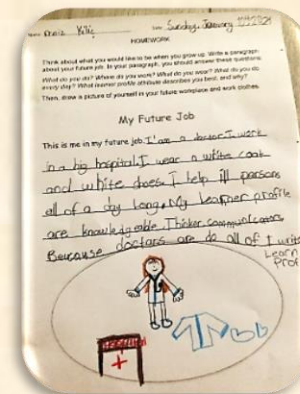 Name Date Sunday, January
HOMEWORK
Think about what you would like to be when you grow up. Write a paragraph
about your future job. In your paragraph, you should answer these questions:
What do you do? Where do you work? What do you wear? What do you do
every day? What learner profile attribute describes you best, and why?
Then, draw a picture of yourself in your future workplace and work clothes.
My Future Job
This is me in my future job I'am a doctor I work
in a big hospital. I wear a white coat
and white shoes. I help ill persons
all of a day long. My learner profile
are knowledgeable. Thinker communicators
Because doctors are do all of I write
Learn
Prof